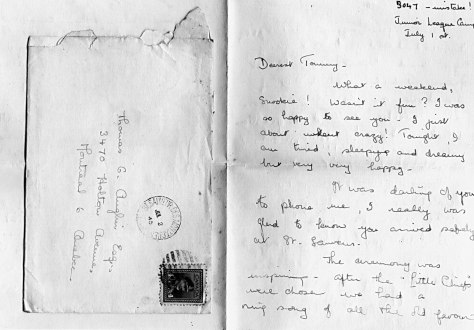 Thomas G. Anglin Esq.,
3470 Holton Avenue,
Montreal 6
Quebec
JUL 2
45
9047 - mistake!
Junior League Camp
July 1st.
Dearest Tommy -
What a weekend,
! Wasn't it fun? I was
so happy to see you - I just
about went crazy! Tonight, I
am tired, sleepy and dreamy
but very very happy.
It was darling of you
to phone me, I really was
glad to know you arrived safely
at St.
The ceremony was
inspiring - after the "little Chiefs
were chosen we had a
song of all the old favour